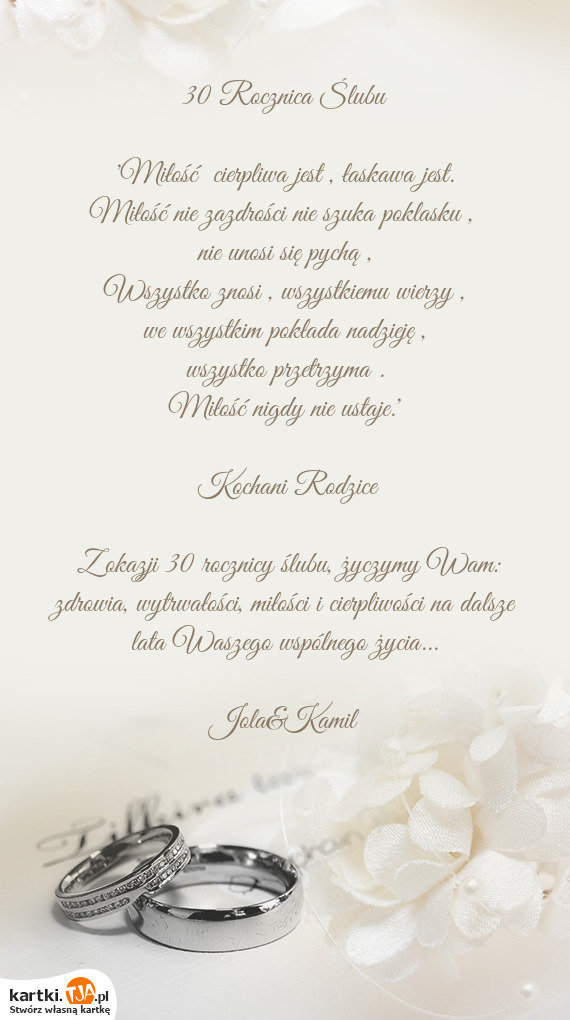 30 Rocznica Ślubu
'Miłość cierpliwa jest , łaskawa jest.
Miłość nie zazdrości nie szuka poklasku ,
nie unosi się pychą ,
Wszystko znosi , wszystkiemu wierzy ,
we wszystkim pokłada nadzieję ,
wszystko przetrzyma .
Miłość nigdy nie ustaje.'
Kochani Rodzice
Zokazji 30 rocznicy ślubu, życzymy Wam:
zdrowia, wytrwałości, miłości i cierpliwości na dalsze
lata Waszego wspólnego życia...
Jola&Kamil
kartki.TJA.pl
Stwórz własną kartkę